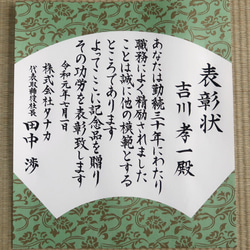 表彰状
吉川孝一殿
あなたは勤続三十年にわたり
職務によく精励されました
ことは誠に他の模範とする
ところであります
よってここに記念品を贈り
その功労を表彰致します
令和元年七月一日
株式会社タナカ
代表取締役社長 田中渉